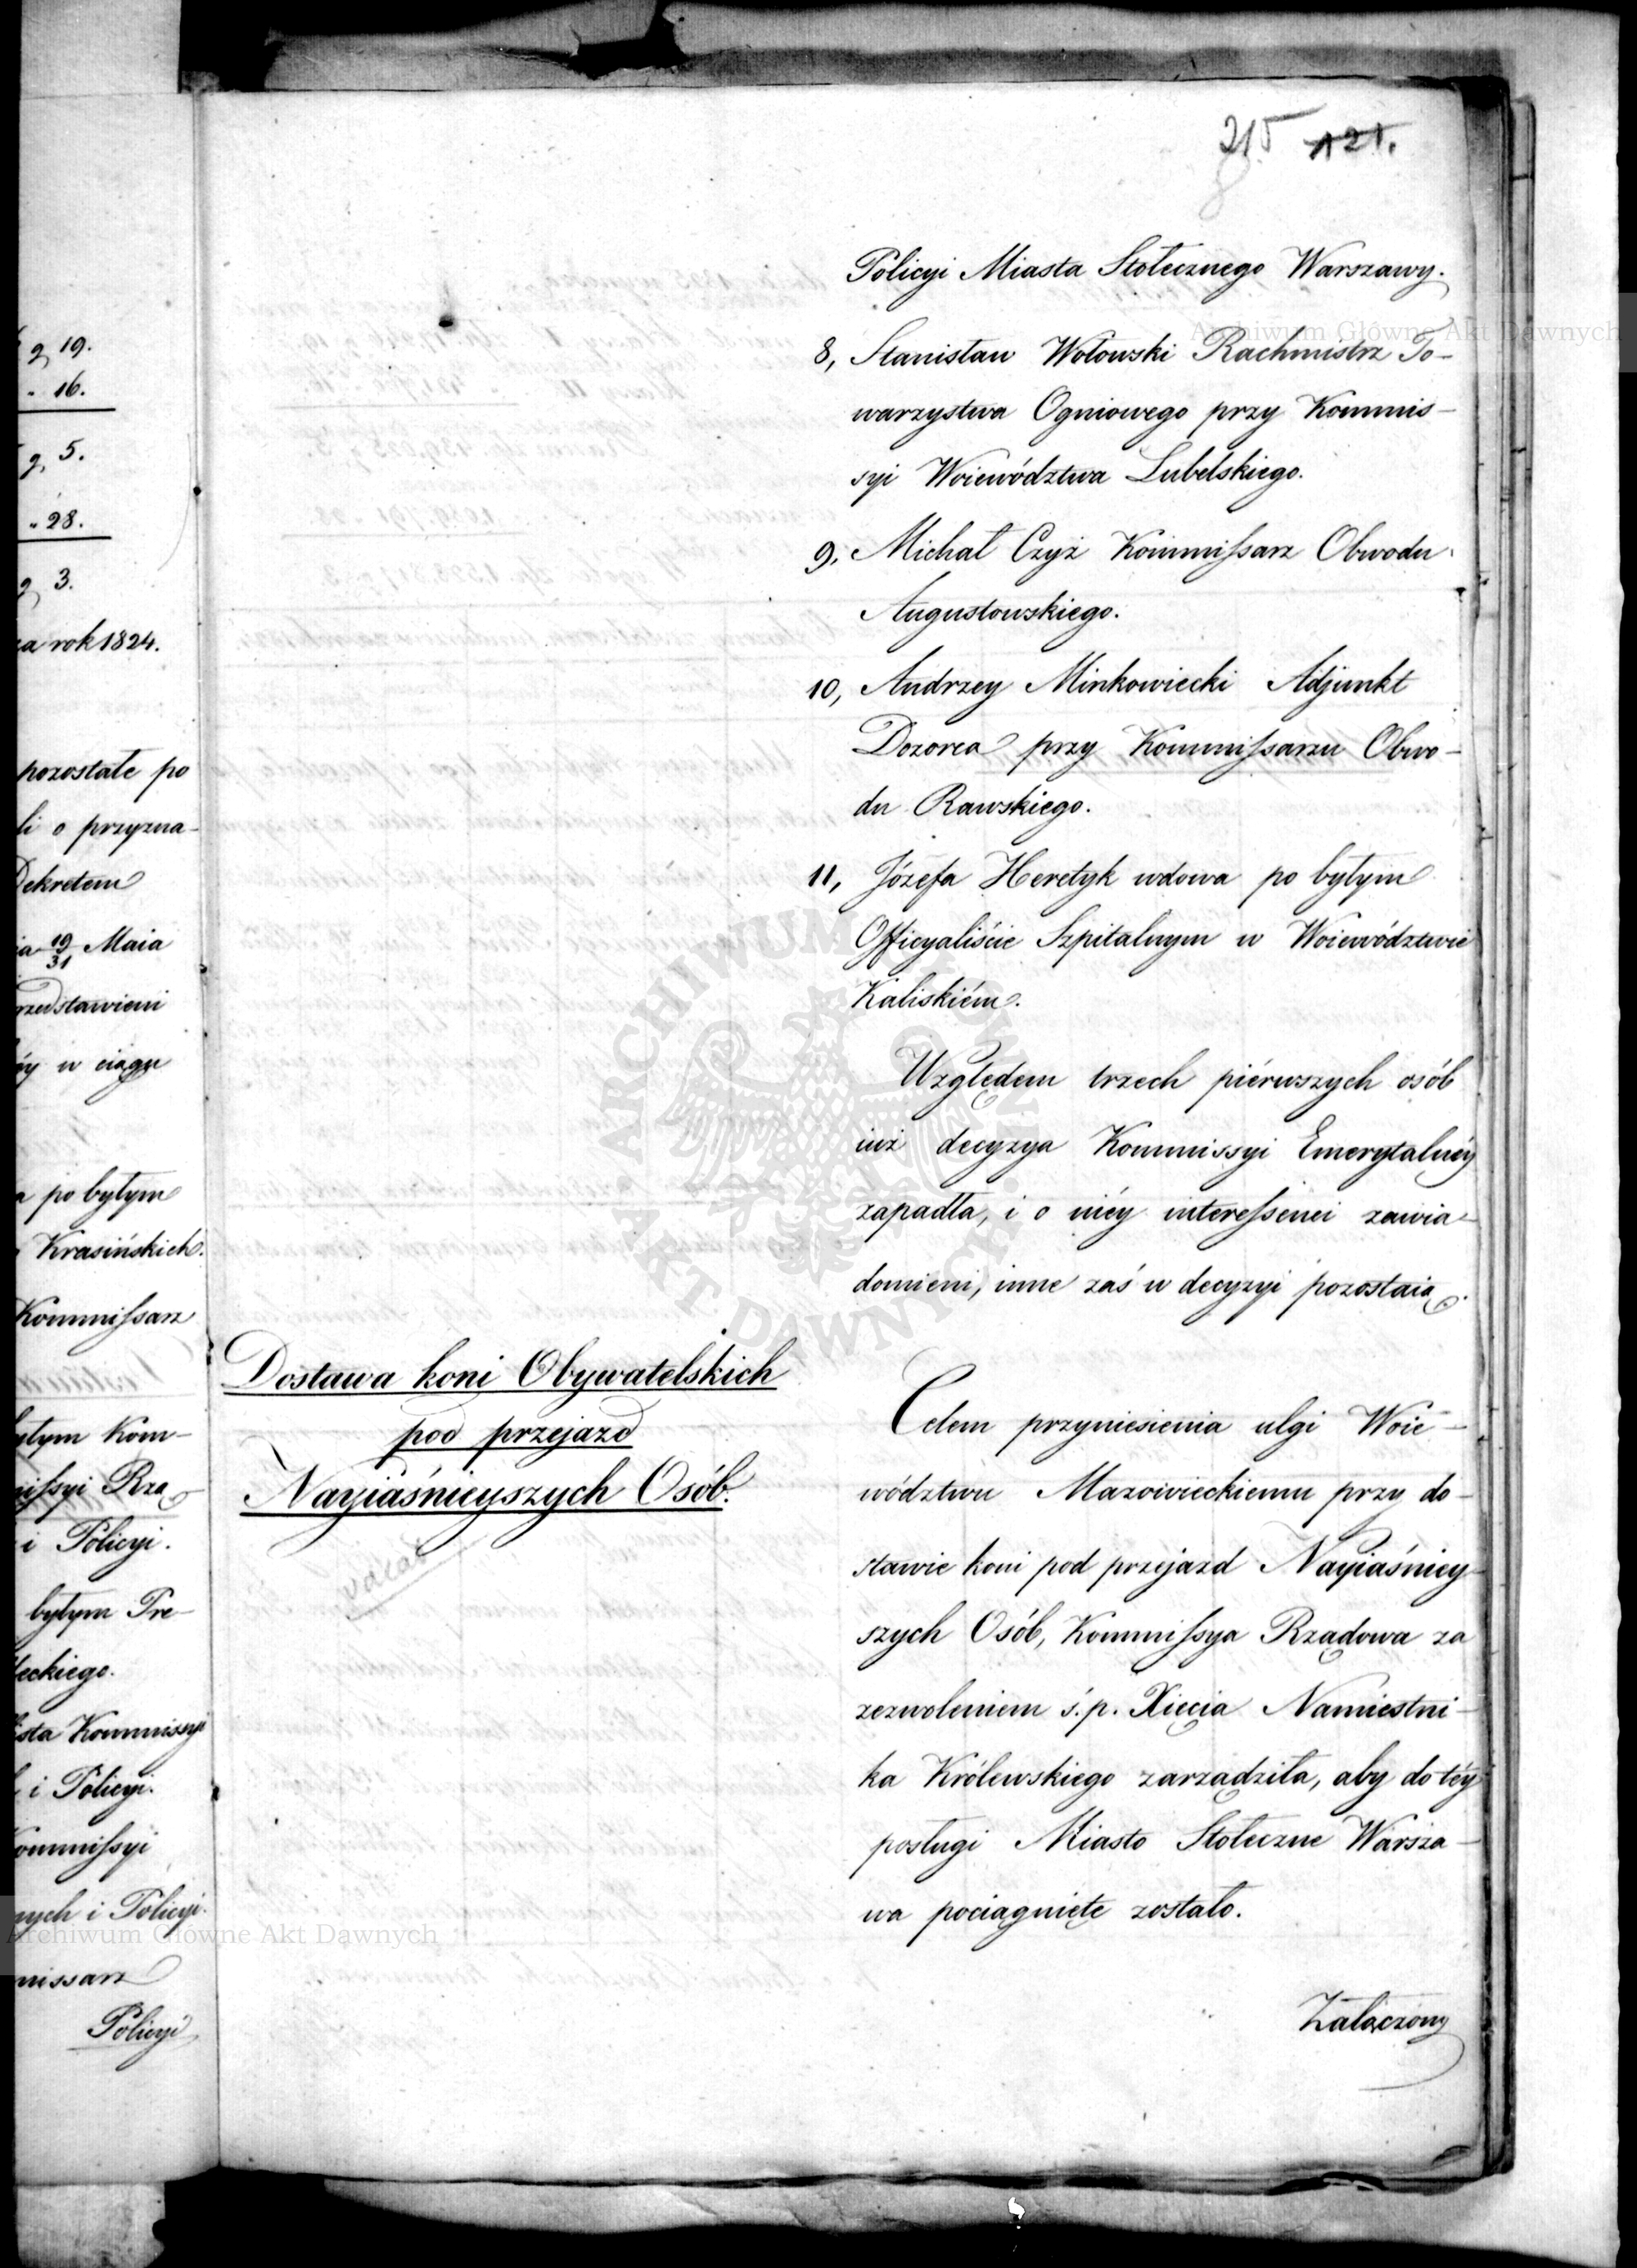 215 121.
Policyi Miasta Stołecznego Warszawy.
8, Stanisław Wołowski Rachmistrz To-
warzystwa Ogniowego przy Kommis-
syi Woiewództwa Lubelskiego.
9, Michał Czyż Kommissarz Obwodu
Augustowskiego.
10, Andrzey Minkowiecki Adjunkt
Dozorca przy Kommissarzu Obwo-
du Rawskiego.
11, Józefa Heretyk wdowa po byłym
Officyaliście Szpitalnym w Woiewództwie
Kaliskiém.
Względem trzech piérwszych osób
iuż decyzya Kommissyi Emerytalnéy
zapadła, i o niéy interessenci zawia-
domieni, inne zaś w decyzyi pozostaią.
Dostawa koni Obywatelskich
pod przejazd
Nayiaśnieyszych Osób.
vacat
Celem przyniesienia ulgi Woie-
wództwu Mazowieckiemu przy do-
stawie koni pod przejazd Nayiaśniey-
szych Osób, Kommissya Rządowa za
zezwoleniem ś.p. Xięcia Namiestni-
ka Królewskiego zarządziła, aby do téy
posługi Miasto Stołeczne Warsza-
wa pociągnięte zostało.
Załączony
g, 19.
" 16.
g, 5.
" 28.
g, 3.
za rok 1824.
pozostałe po
li o przyzna-
Dekretem
ia 19/31 Maia
rzedstawieni
w ciągu
a po byłym
Krasińskich.
Kommissarz
byłym Kom-
missyi Rzą-
i Policyi.
byłym Pre-
leckiego.
ista Kommissyi
i Policyi.
Kommissyi
nych i Policyi.
missarz
Policyi
Archiwum Główne Akt Dawnych
Archiwum Główne Akt Dawnych
ARCHIWUM GŁÓWNE AKT DAWNYCH